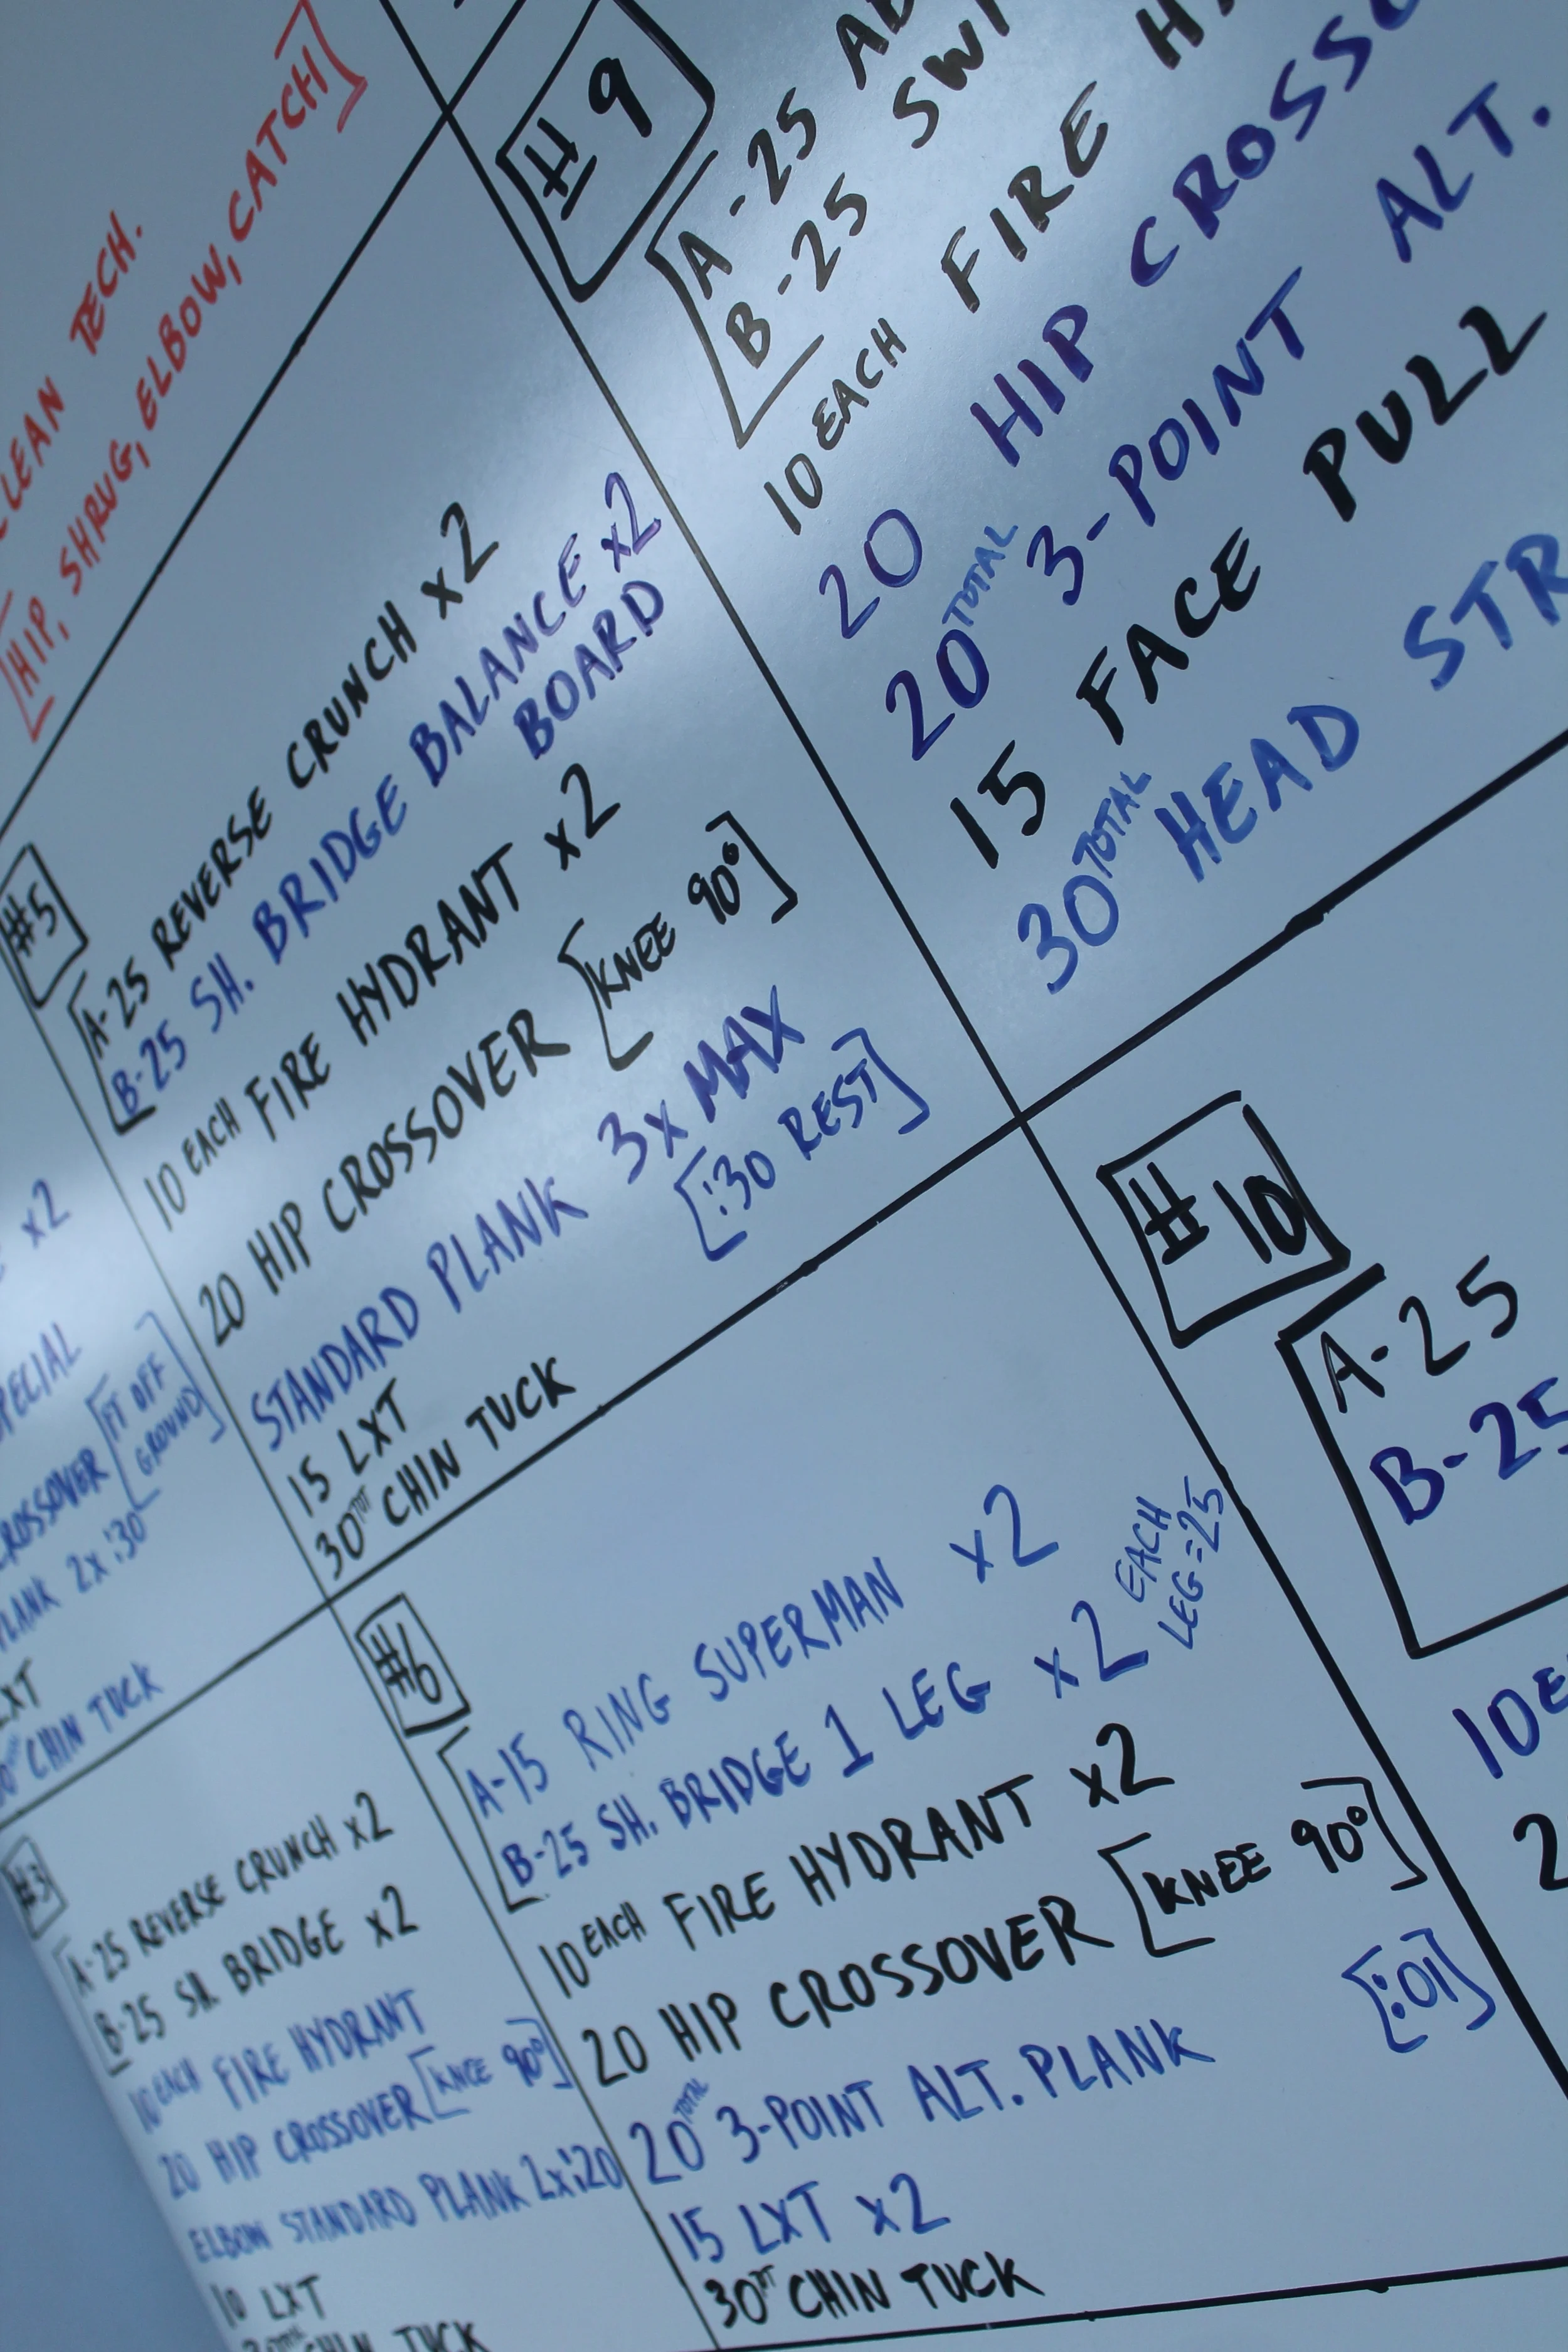 CLEAN TECH.
[HIP, SHRUG, ELBOW, CATCH]
x2
CROSSOVER [FT OFF
GROUND]
PLANK 2x :30
LXT
CHIN TUCK
#3
A-25 REVERSE CRUNCH x2
B-25 SH. BRIDGE x2
10 EACH FIRE HYDRANT
20 HIP CROSSOVER [KNEE 90°]
ELBOW STANDARD PLANK 2x:20
10 LXT
CHIN TUCK
#5
A-25 REVERSE CRUNCH x2
B-25 SH. BRIDGE BALANCE x2
BOARD
10 EACH FIRE HYDRANT x2
20 HIP CROSSOVER [KNEE 90°]
STANDARD PLANK 3x MAX
[:30 REST]
15 LXT
30 TOT CHIN TUCK
#6
A-15 RING SUPERMAN x2
B-25 SH. BRIDGE 1 LEG x2 EACH
LEG=25
10 EACH FIRE HYDRANT x2
20 HIP CROSSOVER [KNEE 90°]
20 TOTAL 3-POINT ALT. PLANK [:01]
15 LXT x2
30 TOT CHIN TUCK
#9
A-25
B-25
10 EACH FIRE
20 HIP
20 TOTAL 3-POINT ALT.
15 FACE PULL
30 TOTAL HEAD
#10
A-25
B-25
10
2